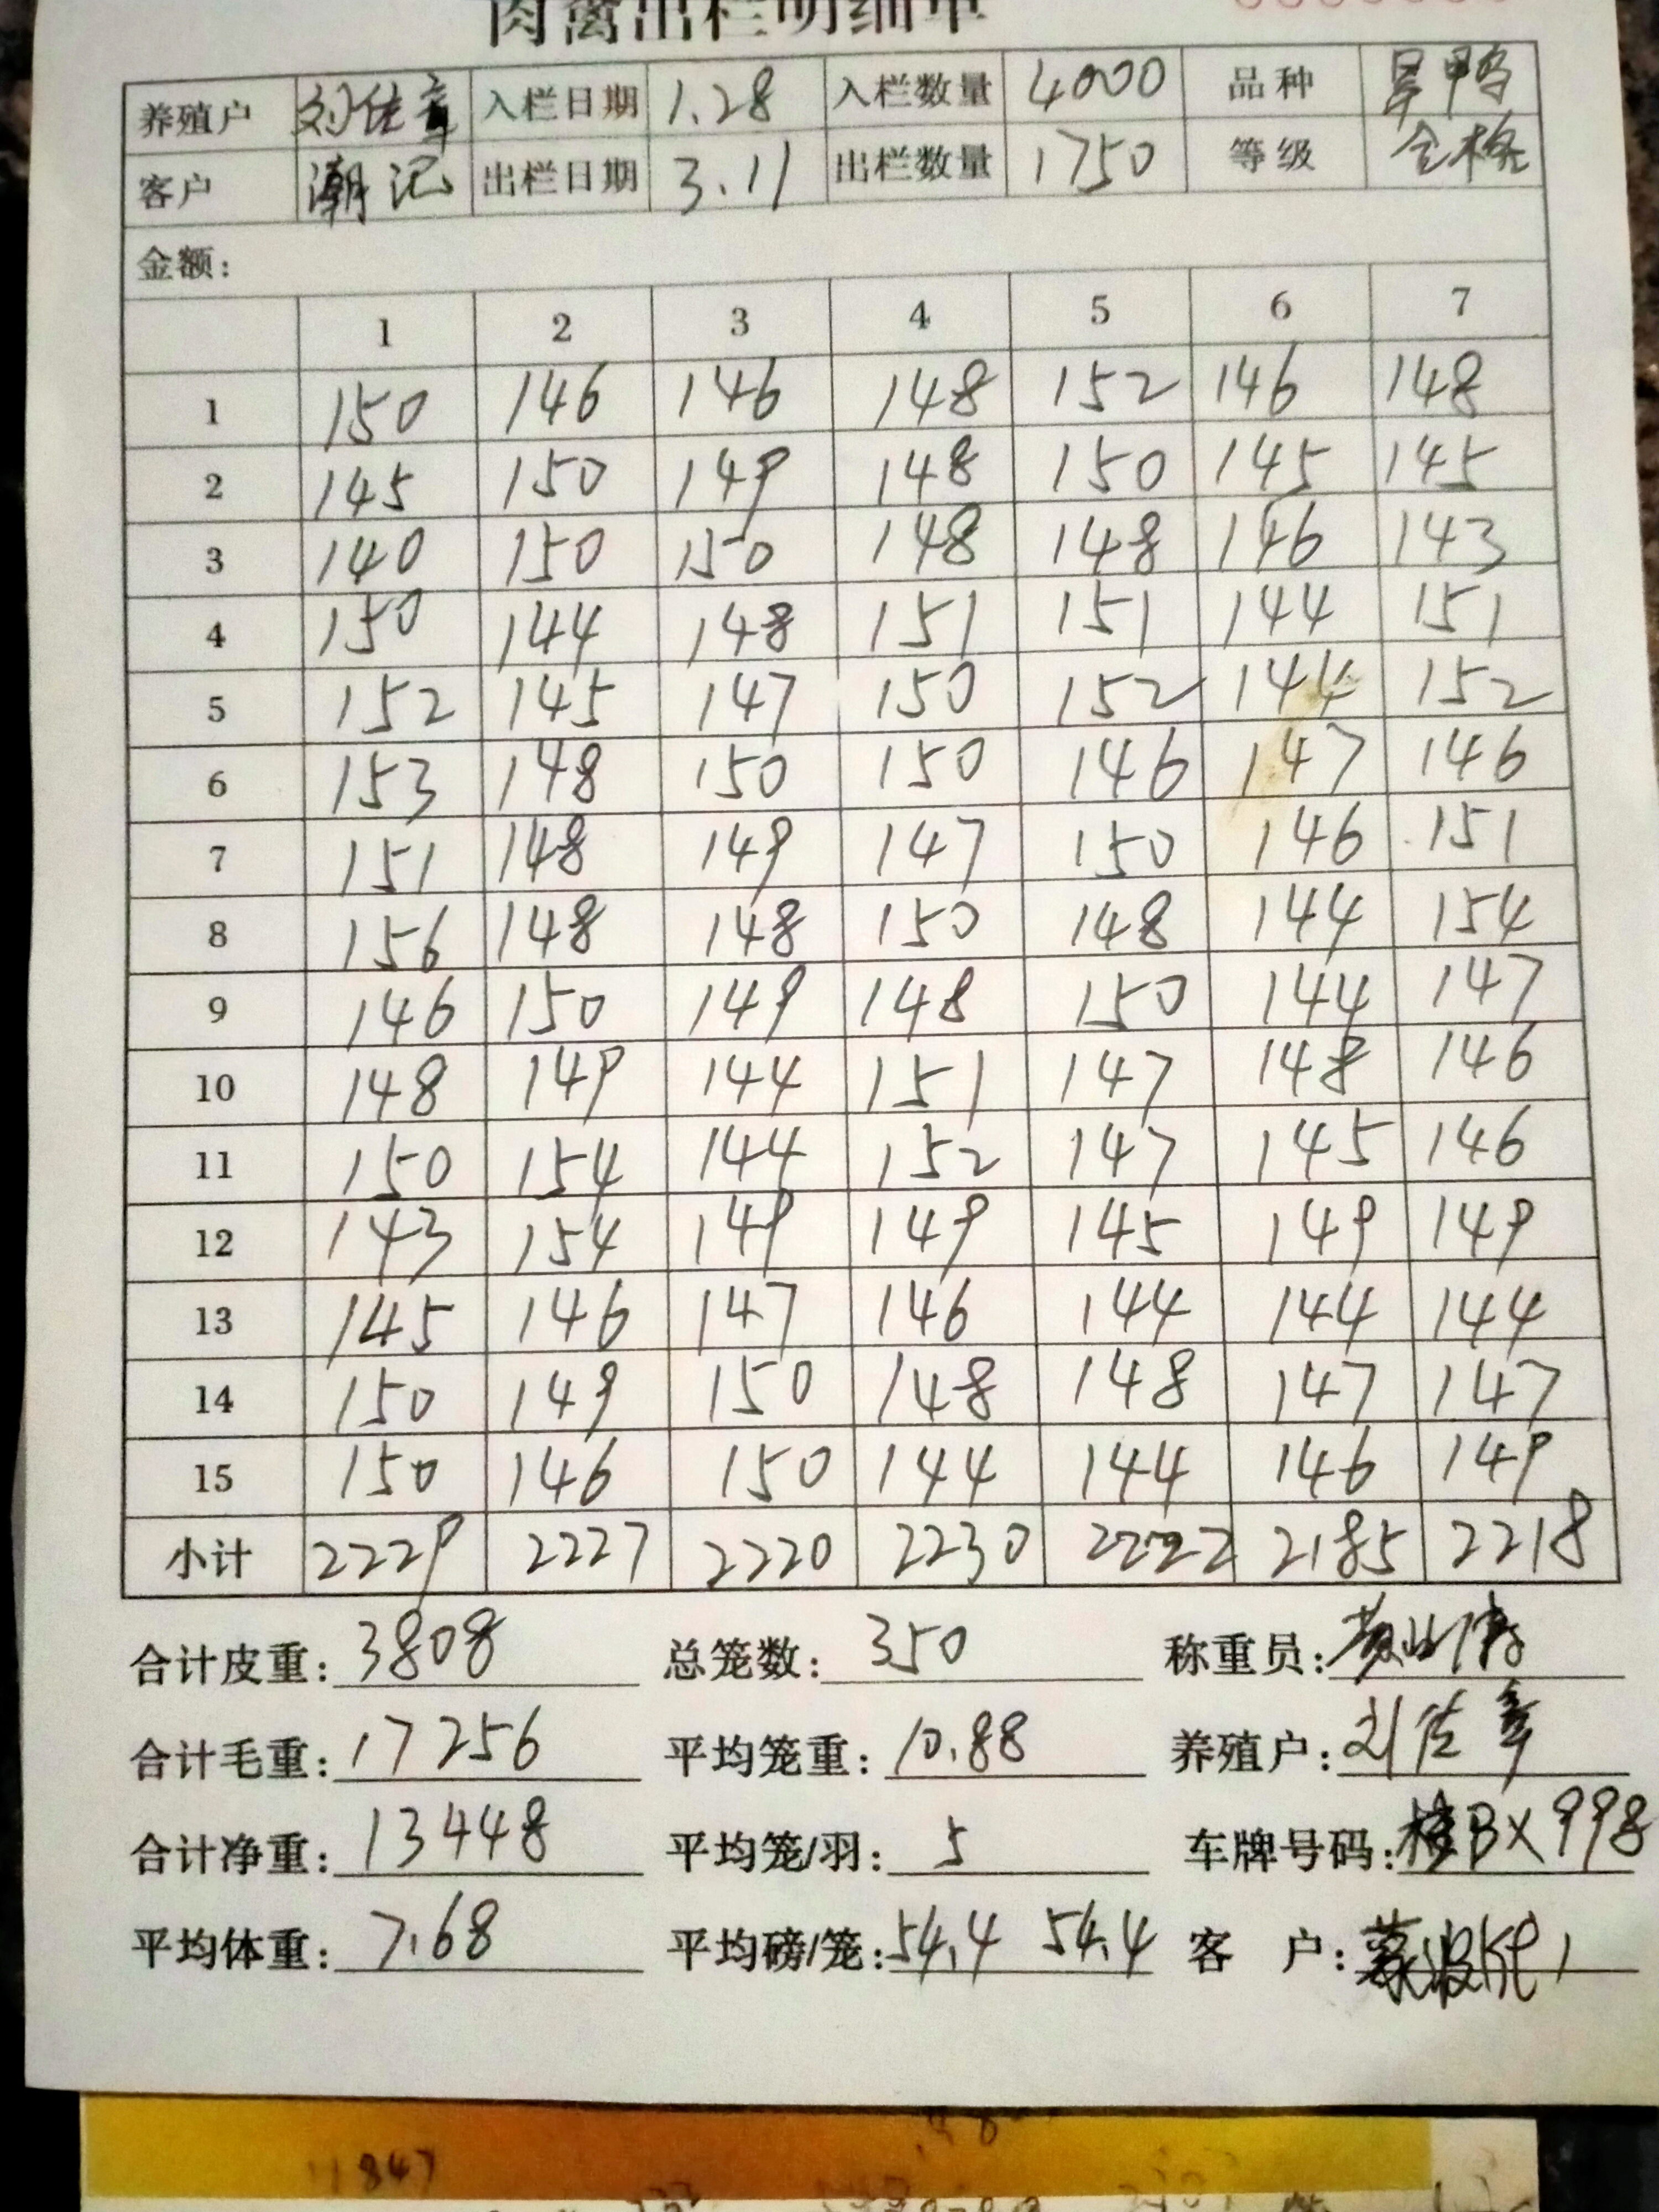 肉禽出栏明细单
养殖户 刘佐章 入栏日期 1.28 入栏数量 4000 品种 旱鸭
客户 潮记 出栏日期 3.11 出栏数量 1750 等级 合格
金额：
1 2 3 4 5 6 7
1 150 146 146 148 152 146 148
2 145 150 149 148 150 145 145
3 140 150 150 148 148 146 143
4 150 144 148 151 151 144 151
5 152 145 147 150 152 144 152
6 153 148 150 150 146 147 146
7 151 148 149 147 150 146 151
8 156 148 148 150 148 144 154
9 146 150 149 148 150 144 147
10 148 149 144 151 147 148 146
11 150 154 144 152 147 145 146
12 143 154 149 149 145 149 149
13 145 146 147 146 144 144 144
14 150 149 150 148 148 147 147
15 150 146 150 144 144 146 149
小计 2229 2227 2220 2230 2222 2185 2218
合计皮重：3808 总笼数：350 称重员：
合计毛重：17256 平均笼重：10.88 养殖户：刘佐章
合计净重：13448 平均笼/羽：5 车牌号码：桂BX998
平均体重：7.68 平均磅/笼：54.4 54.4 客 户：
11847